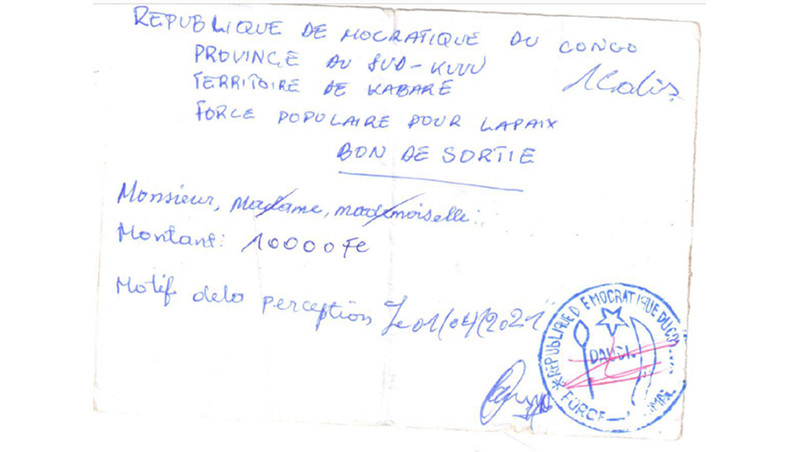 REPUBLIQUE DE MOCRATIQUE DU CONGO
PROVINCE DU SUD-KUVU
TERRITOIRE DE KABARE
FORCE POPULAIRE POUR LAPAIX
BON DE SORTIE
Monsieur, Madame, mademoiselle:
Montant: 10000Fc
Motif dela perception Le 01/04/2021
REPUBLIQUE DEMOCRATIQUE DU
FORCE